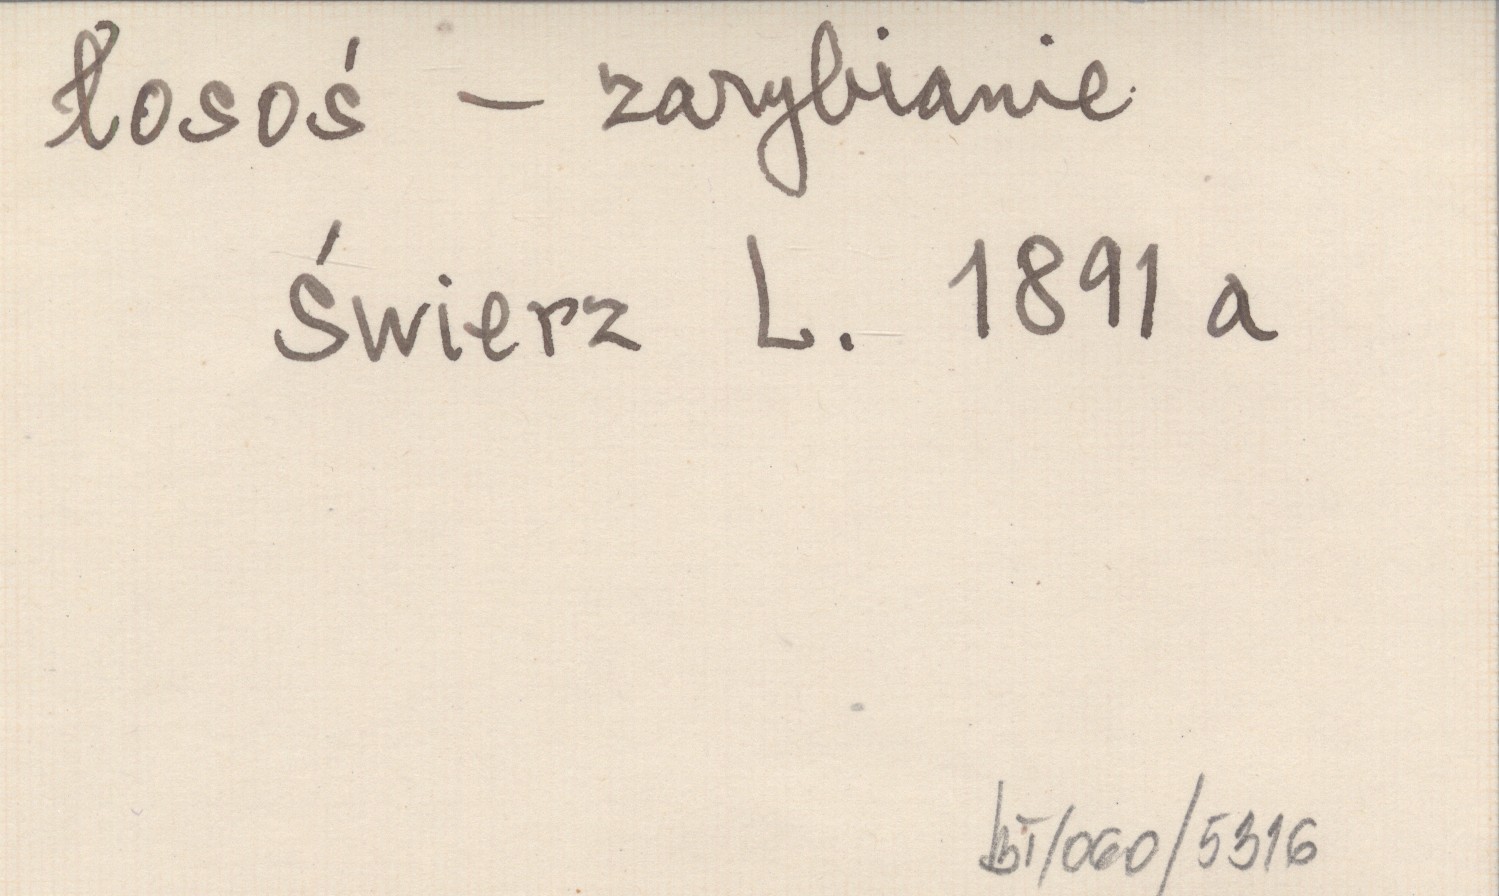 łosoś – zarybianie
Świerz L. 1891 a
/060/5316